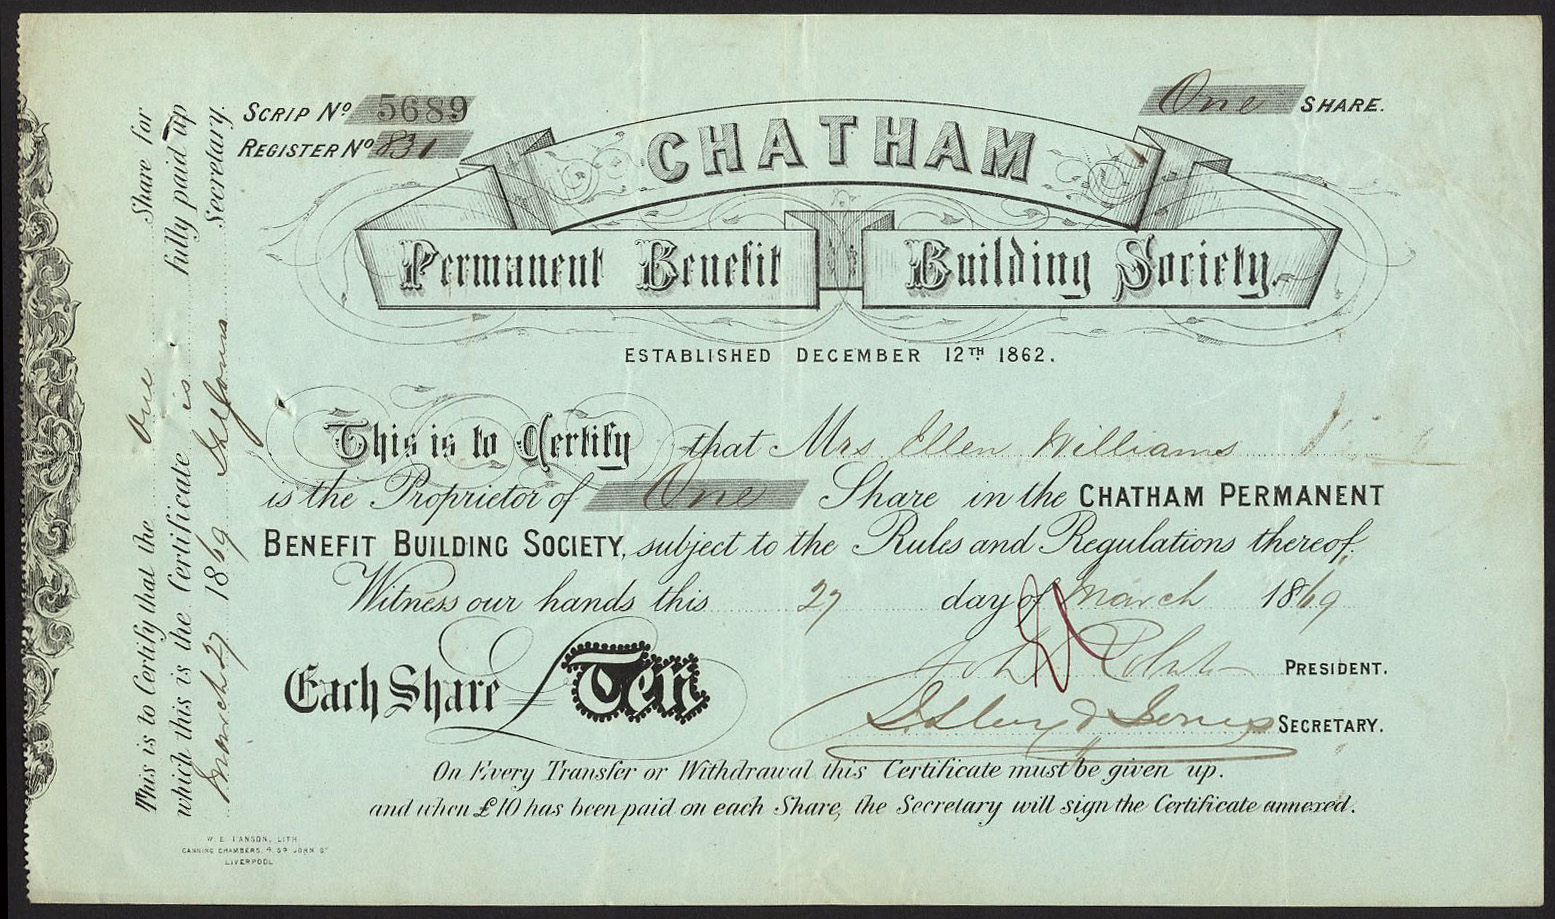 SCRIP Nº 5689
REGISTER Nº 831
One SHARE.
CHATHAM
Permanent Benefit Building Society.
ESTABLISHED DECEMBER 12TH 1862.
This is to Certify that Mrs Ellen Williams
is the Proprietor of One Share in the CHATHAM PERMANENT
BENEFIT BUILDING SOCIETY, subject to the Rules and Regulations thereof.
Witness our hands this 27 day of March 1869
Each Share £Ten
John PRESIDENT.
Jones SECRETARY.
On Every Transfer or Withdrawal this Certificate must be given up.
and when £10 has been paid on each Share, the Secretary will sign the Certificate annexed.
This is to Certify that the One Share for
which this is the Certificate is fully paid up
March 27 1869 Jones Secretary.
LITH
CANNING CHAMBERS, JOHN ST
LIVERPOOL